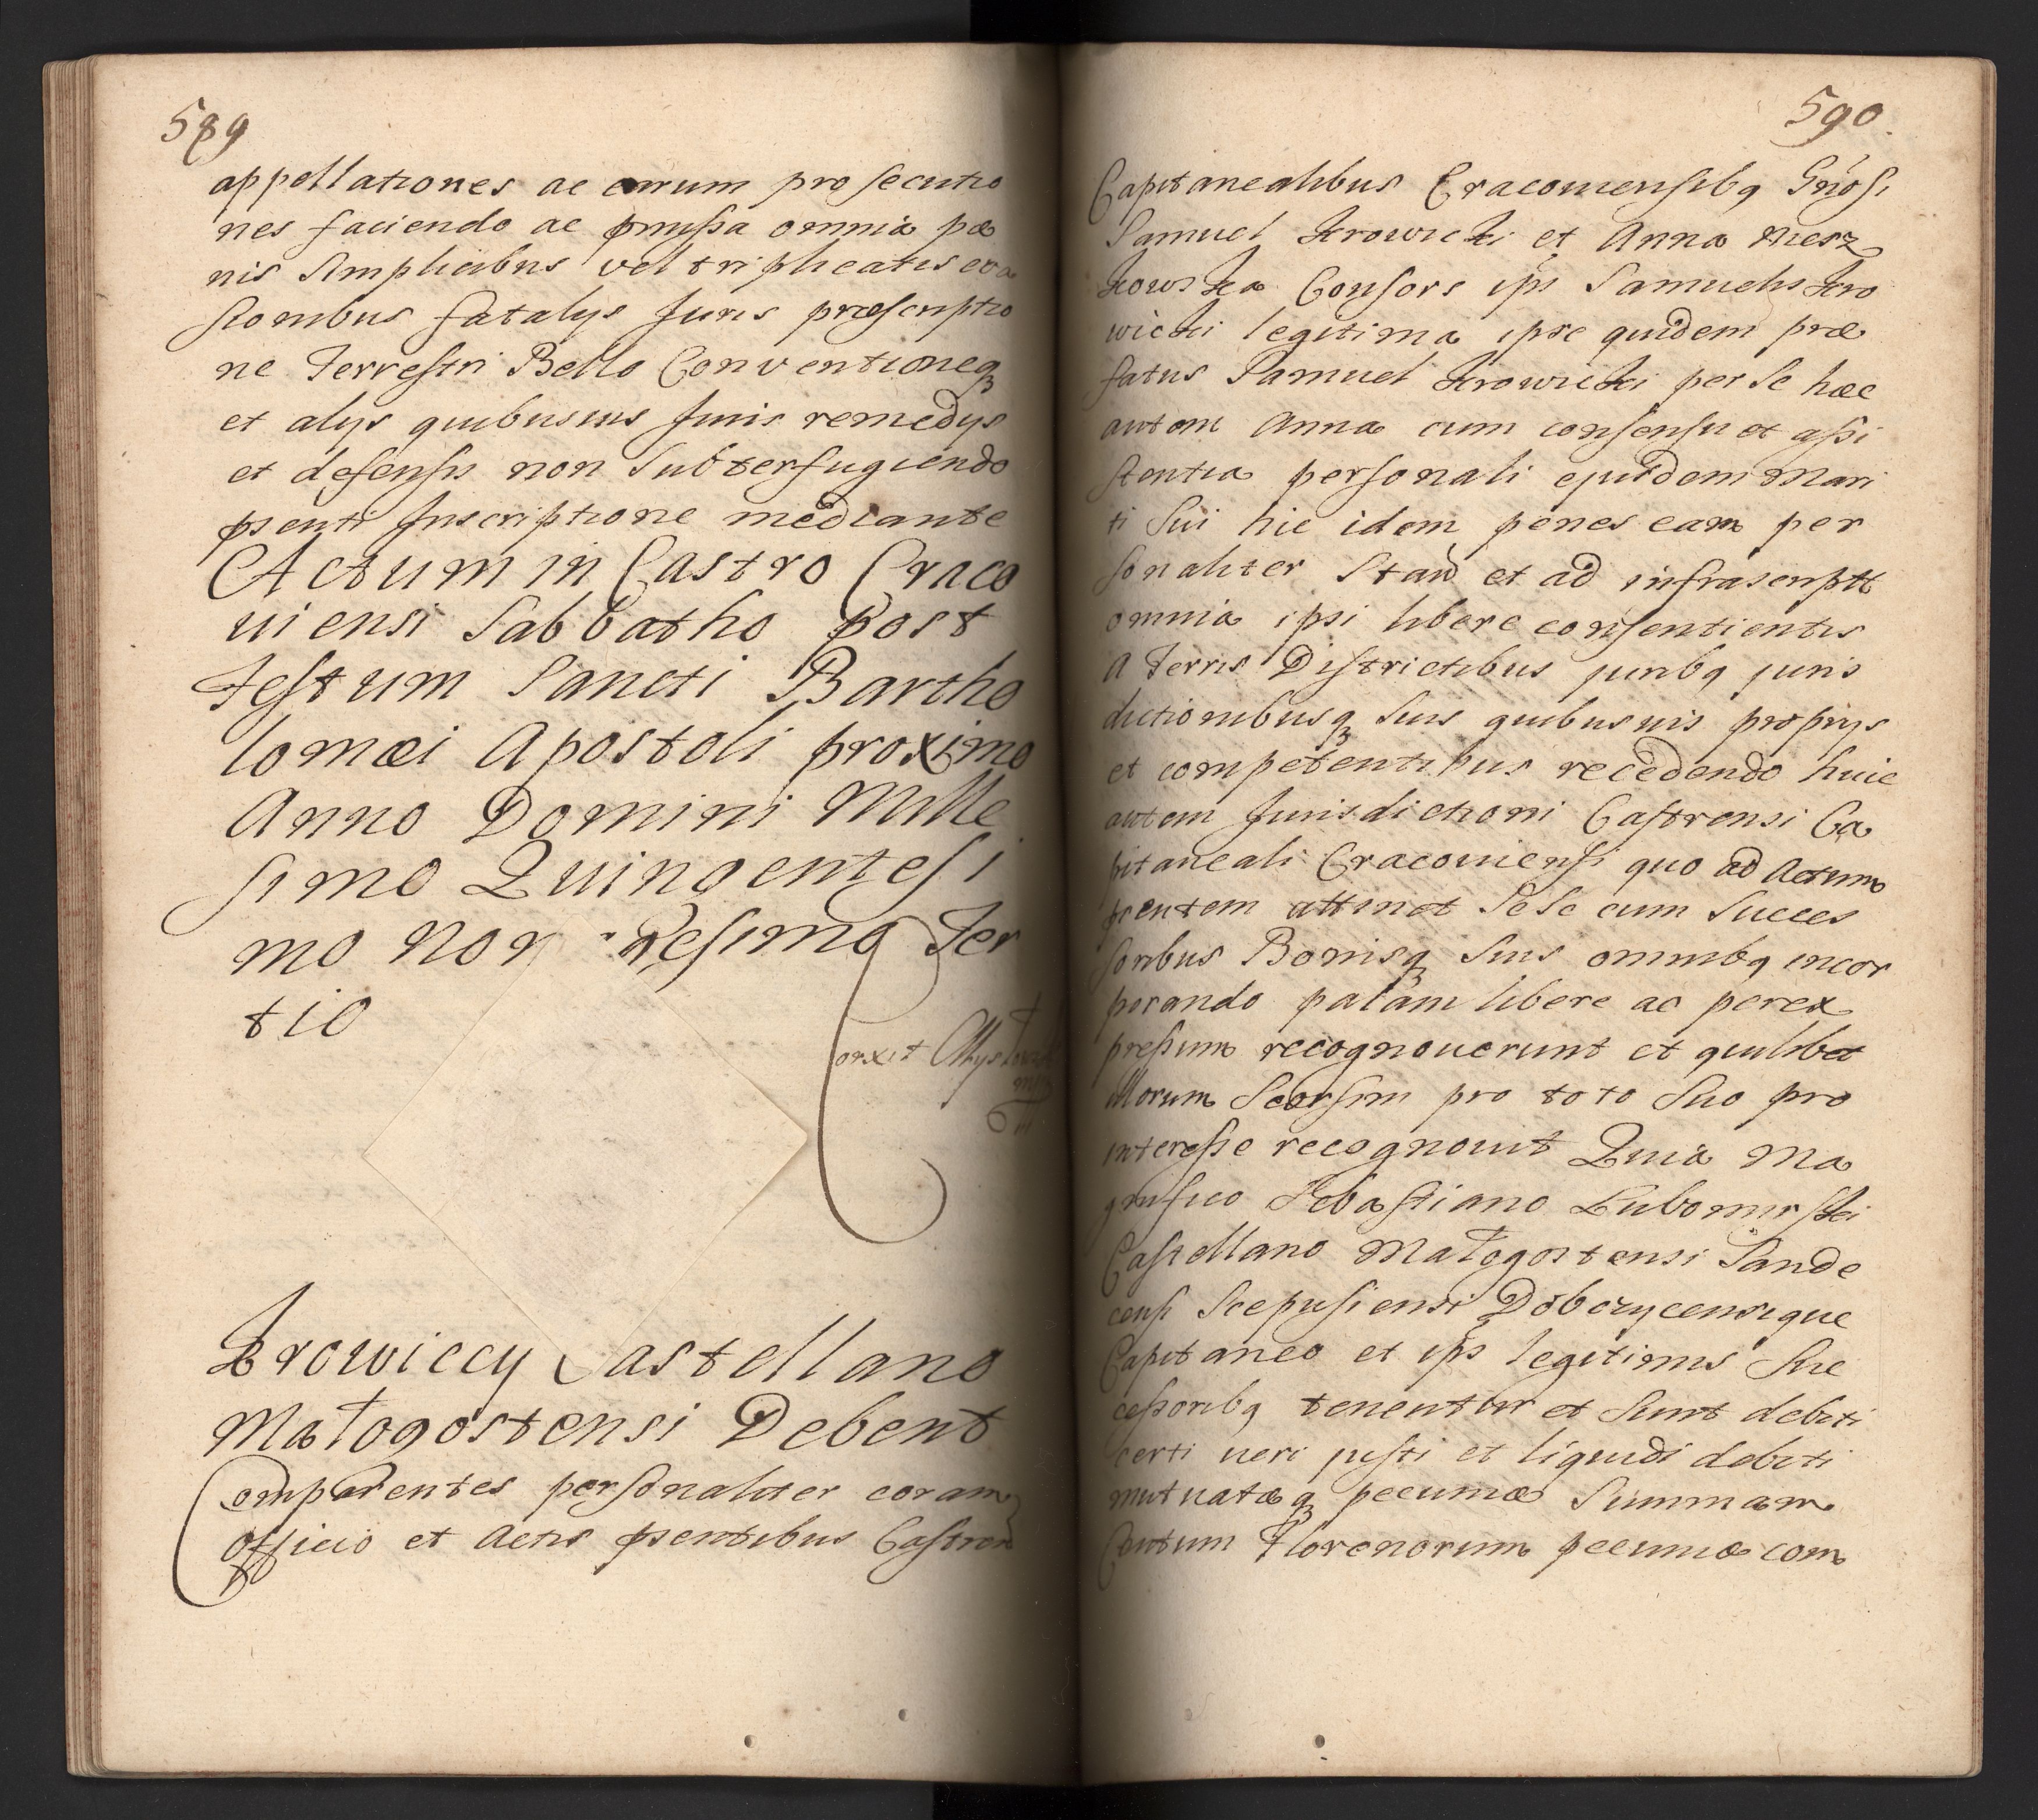 589
appellationes ac earum prosecutio
nes faciendo ac pmissa omnia pœ
nis simplicibus vel triplicatis eva
sionibus fatalijs Juris præscriptio
ne Terrestri Bello Conventioneq
et alijs quibusuis Juris remedijs
et defensis non subterfugiendo
psenti Inscriptione mediante
Actum in Castro Craco
uiensi Sabbatho post
Festum Sancti Bartho
lomæi Apostoli proximo
Anno Domini Mille
simo Quingentesi
mo Non gesimo Ter
tio
Correxit
Krowiccy Castellano
Małogostensi Debent
Comparentes personaliter coram
Officio et Actis psentibus Castren
590.
Capitanealibus Cracouiensibq Gnosi
Samuel Krowicki et Anna Miesz
kowska Consors ipsi Samuelis Kro
wicki legitima ipse quidem præ
fatus Samuel Krowicki per se hæc
autem Anna cum consensu et assi
stentia personali ejusdem Mari
ti sui hic idem penes eam per
sonaliter stan et ad infrascriptt
omnia ipsi libere consentientis
a Terris Districtibus juribq juris
dictionibusq suis quibusuis proprijs
et competentibus recedendo huic
autem Jurisdictioni Castrensi Ca
pitaneali Cracouiensi quo ad Actum
psentem attinet sese cum Succes
soribus Bonisq suis omnibq incor
porando palam libere ac perex
pressum recognouerunt et quilibet
illorum seorsim pro toto suo pro
interesse recognouit Quia Ma
gnifico Sebastiano Lubomirski
Castellano Małogostensi Sande
censi Scepusiensi Dobczycensique
Capitaneo et ips legitimis Suc
cessoribq tenentur et sunt debiti
certi ueri justi et liquidi debiti
mutuatæq pecuniæ Summam
Centum Florenorum pecuniæ com